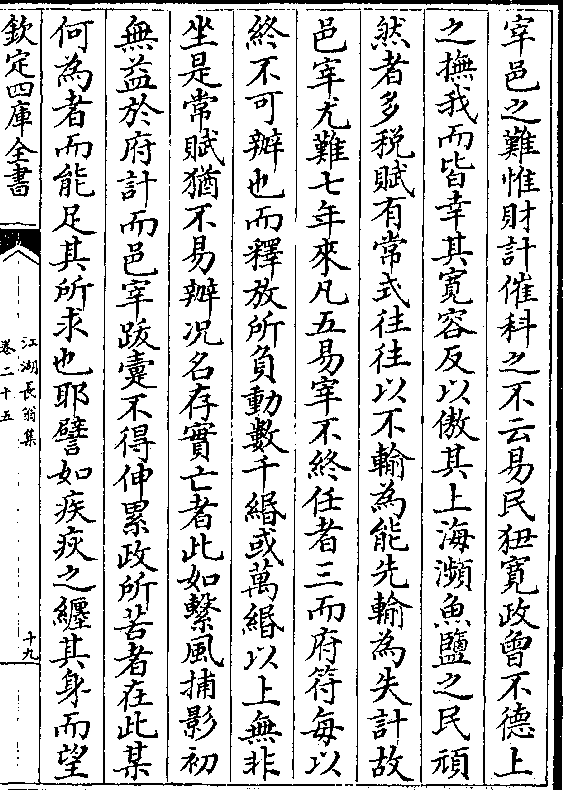 宰邑之難惟財計催科之不云易民狃寛政曾不德上
之撫我而皆幸其寛容反以傲其上海瀕魚鹽之民頑
然者多税賦有常式往往以不輸為能先輸為失計故
邑宰尤難七年來凡五易宰不終任者三而府符每以
終不可辦也而釋放所負動數千緡或萬緡以上無非
坐是常賦猶不易辦况名存實亡者此如繋風捕影初
無益於府計而邑宰跋疐不得伸累政所苦者在此某
何為者而能足其所求也耶譬如疾疢之纒其身而望
欽定四庫全書
江湖長翁集
卷二十五
十九